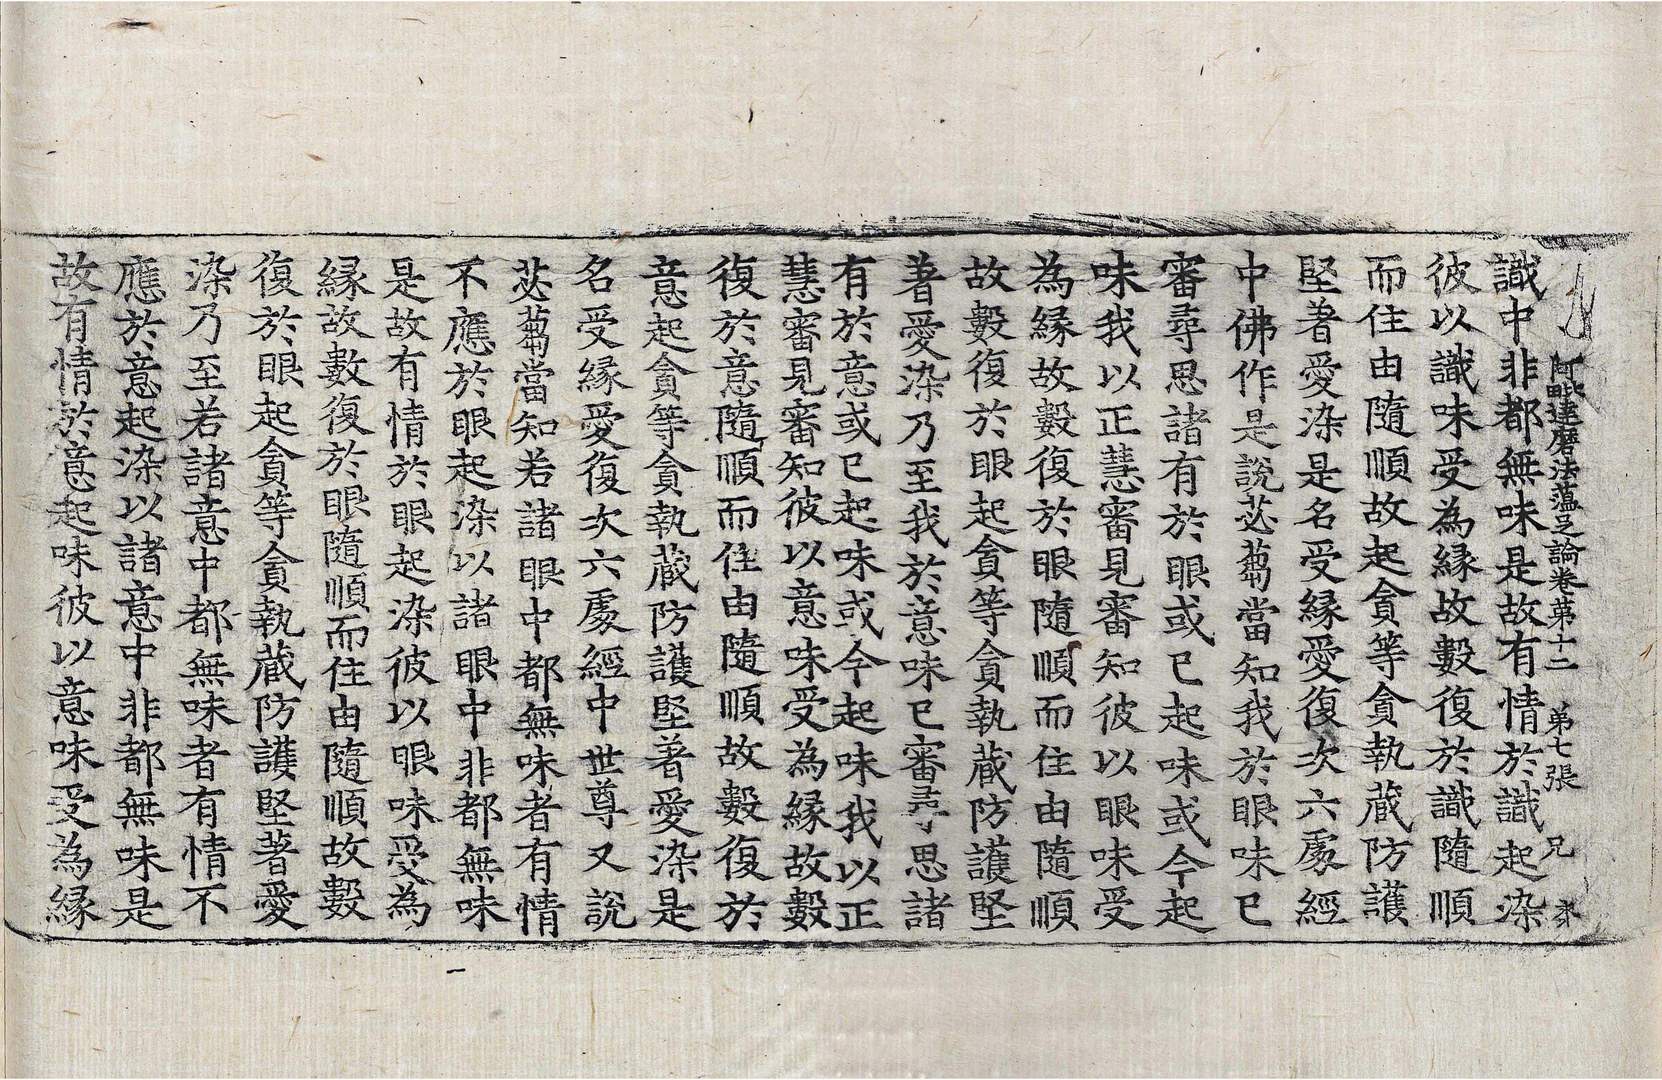 阿毗達磨法蘊足論卷苐十二 苐七張 兄
識中非都無味是故有情於識起染
彼以識味受為緣故數復於識隨順
而住由隨順故起貪等貪執藏防護
堅著愛染是名受緣愛復次六處經
中佛作是說苾蒭當知我於眼味已
審尋思諸有於眼或已起味或今起
味我以正慧審見審知彼以眼味受
為緣故數復於眼隨順而住由隨順
故數復於眼起貪等貪執藏防護堅
著愛染乃至我於意味已審尋思諸
有於意或已起味或今起味我以正
慧審見審知彼以意味受為緣故數
復於意隨順而住由隨順故數復於
意起貪等貪執藏防護堅著愛染是
名受緣愛復次六處經中世尊又說
苾蒭當知若諸眼中都無味者有情
不應於眼起染以諸眼中非都無味
是故有情於眼起染彼以眼味受為
緣故數復於眼隨順而住由隨順故數
復於眼起貪等貪執藏防護堅著愛
染乃至若諸意中都無味者有情不
應於意起染以諸意中非都無味是
故有情於意起味彼以意味受為緣